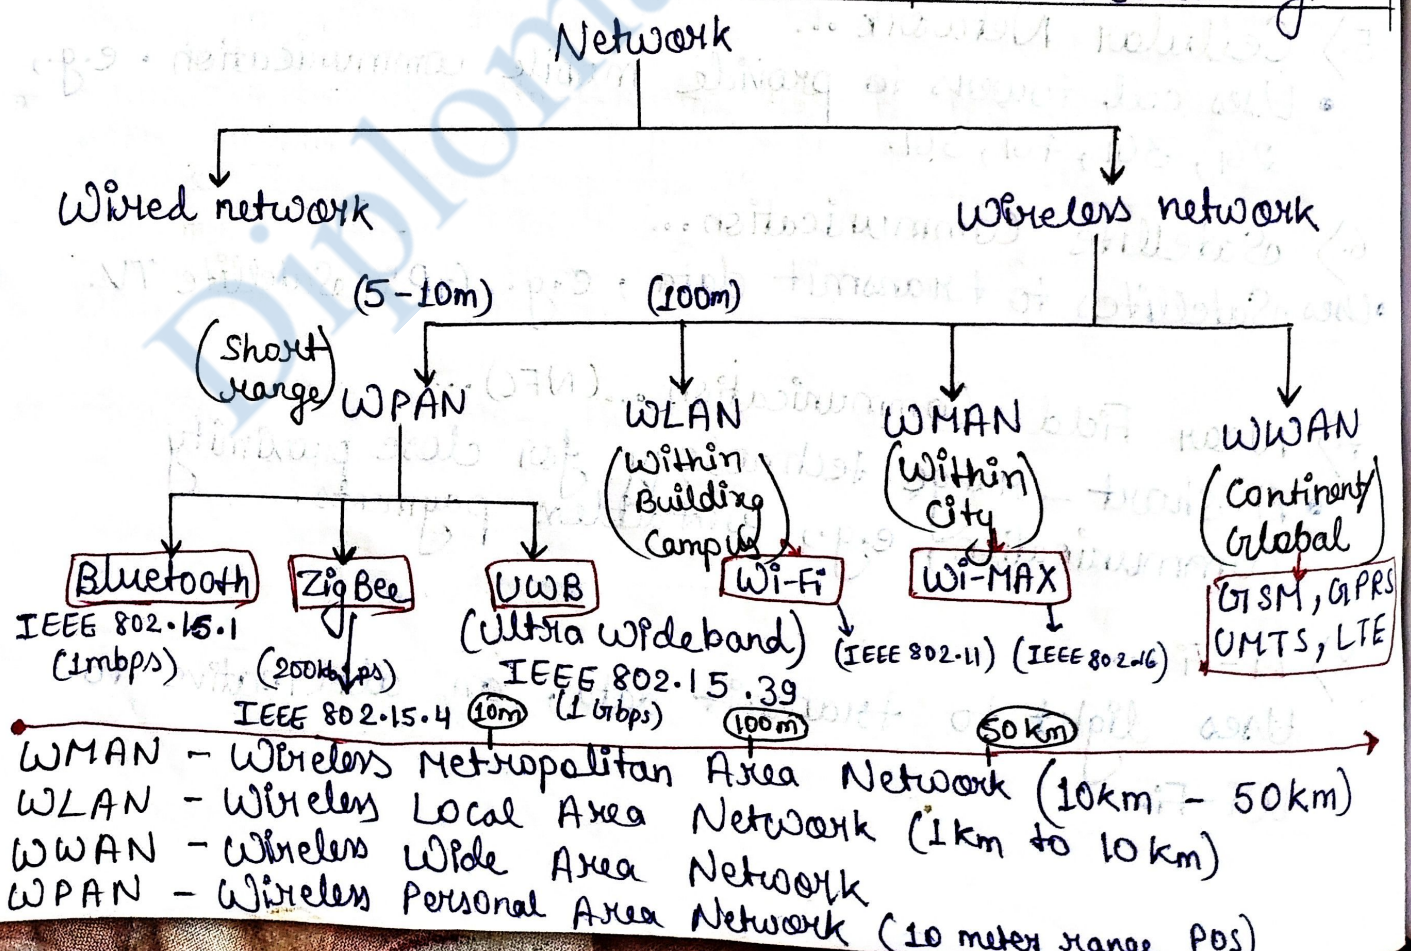 Network
Wired network
Wireless network
(5-10m)
(100m)
(Short range)
WPAN
WLAN
(Within Building Campus)
WMAN
(Within City)
WWAN
(Continent/Global)
Bluetooth
IEEE 802.15.1
(1mbps)
ZigBee
(200kbps)
IEEE 802.15.4
UWB
(Ultra Wideband)
IEEE 802.15.39
(1 Gbps)
Wi-Fi
(IEEE 802.11)
Wi-MAX
(IEEE 802.16)
GSM, GPRS
UMTS, LTE
10m
100m
50km
WMAN - Wireless Metropolitan Area Network (10km - 50km)
WLAN - Wireless Local Area Network (1km to 10km)
WWAN - Wireless Wide Area Network
WPAN - Wireless Personal Area Network (10 meter range POS)
Diploma